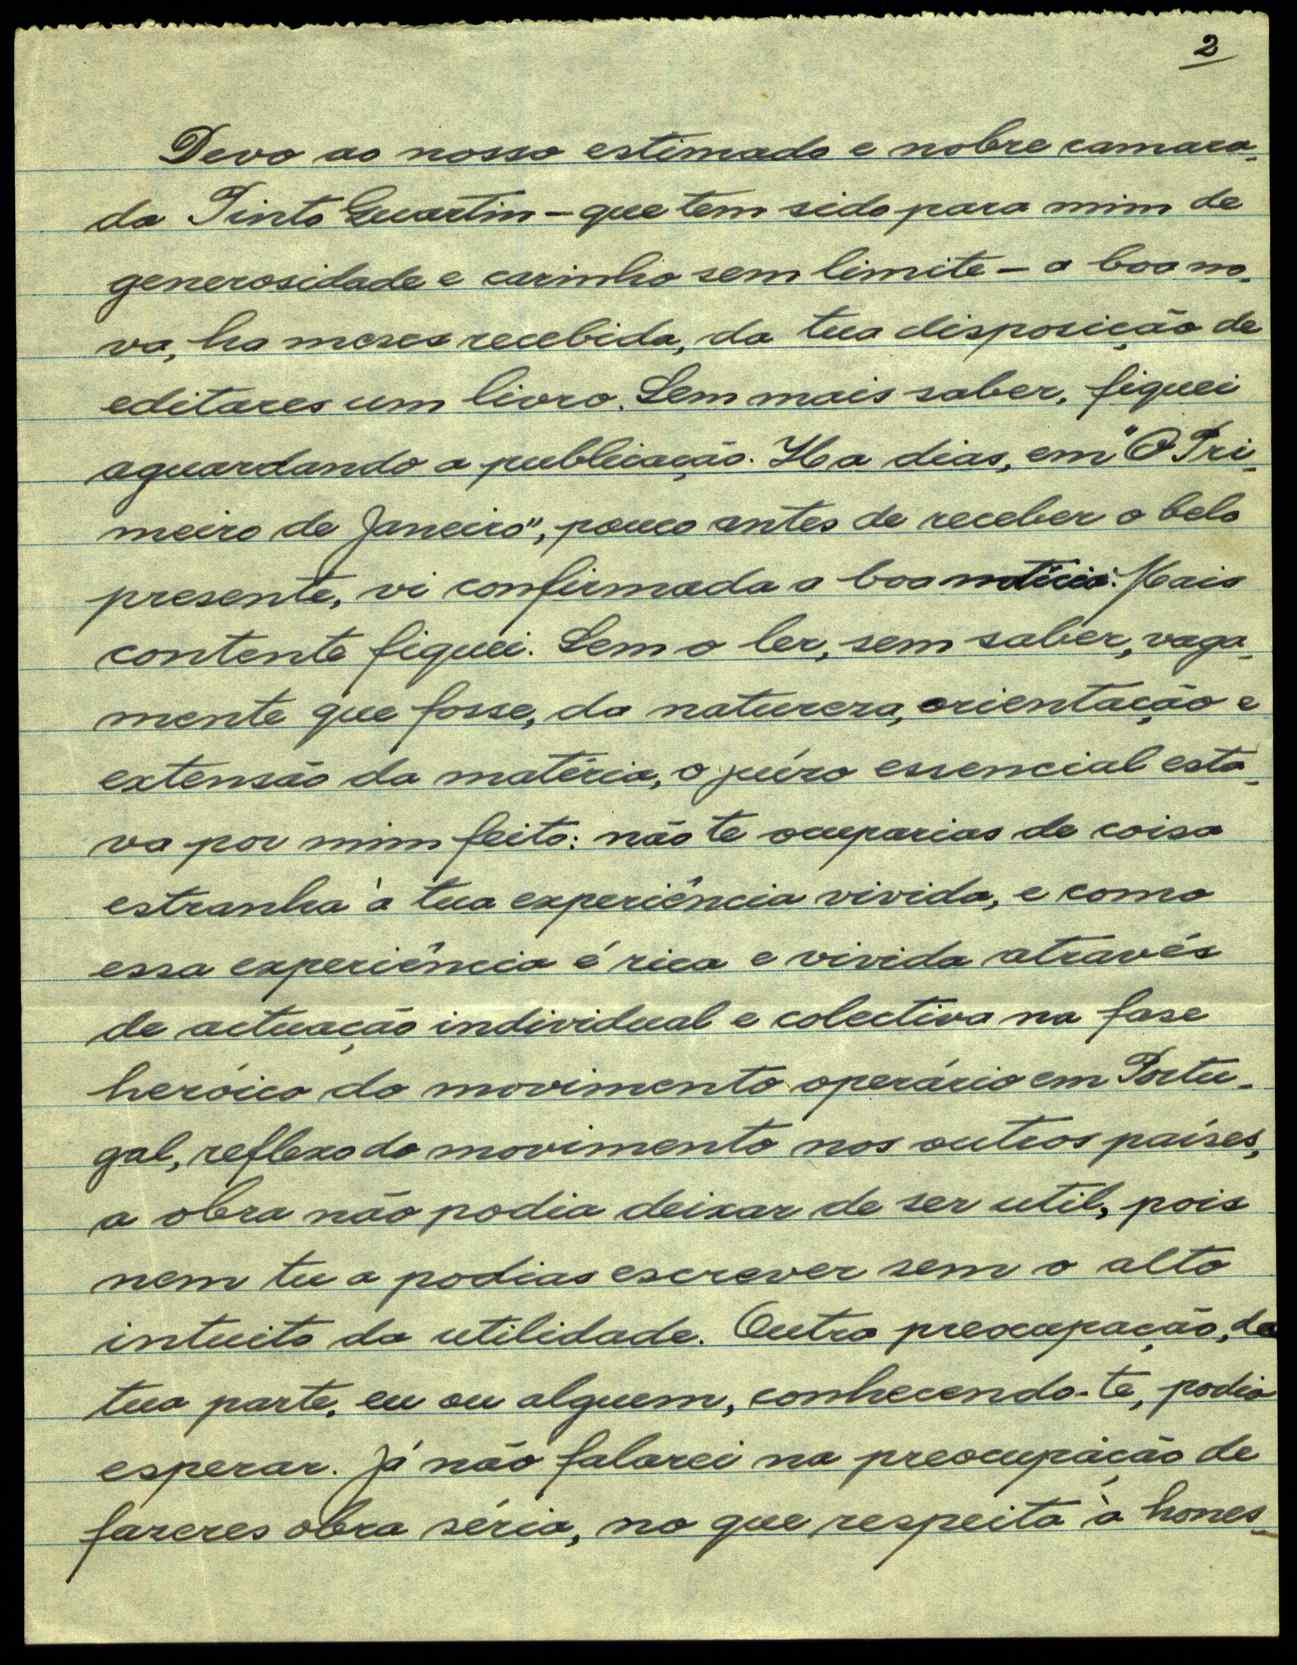 2
Devo ao nosso estimado e nobre camara-
da Pinto Quartin – que tem sido para mim de
generosidade e carinho sem limite – a boa no-
va, ha meses recebida, da tua disposição de
editares um livro. Sem mais saber, fiquei
aguardando a publicação. Ha dias, em "O Pri-
meiro de Janeiro", pouco antes de receber o belo
presente, vi confirmada a boa noticia. Mais
contente fiquei. Sem o ler, sem saber, vaga-
mente que fosse, da natureza, orientação e
extensão da matéria, o juízo essencial esta-
va por mim feito: não te ocuparias de coisa
estranha à tua experiência vivida, e como
essa experiência é rica e vivida através
de actuação individual e colectiva na fase
heróica do movimento operário em Portu-
gal, reflexo do movimento nos outros países,
a obra não podia deixar de ser util, pois
nem tu a podias escrever sem o alto
intuito da utilidade. Outra preocupação, da
tua parte, eu ou alguem, conhecendo-te, podia
esperar. Já não falarei na preocupação de
fazeres obra séria, no que respeita à hones-